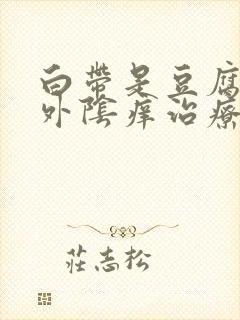 白帶是豆腐
外陰痒治療
莊志松